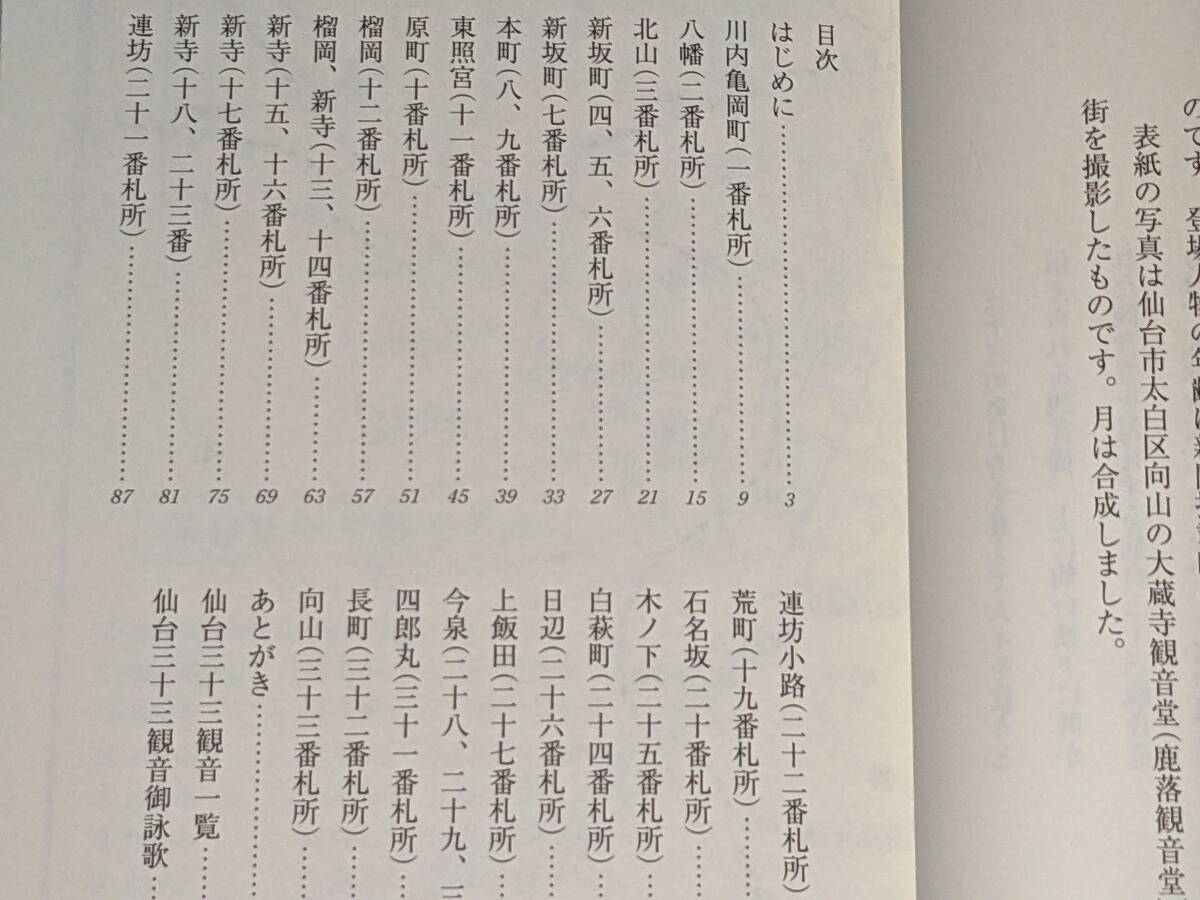 表紙の写真は仙台市太白区向山の大蔵寺観音堂（鹿落観音堂
街を撮影したものです。月は合成しました。
目次
はじめに……………………3
川内亀岡町（一番札所）……………………9
八幡（二番札所）……………………15
北山（三番札所）……………………21
新坂町（四、五、六番札所）……………………27
新坂町（七番札所）……………………33
本町（八、九番札所）……………………39
東照宮（十一番札所）……………………45
原町（十番札所）……………………51
榴岡（十二番札所）……………………57
榴岡、新寺（十三、十四番札所）……………………63
新寺（十五、十六番札所）……………………69
新寺（十七番札所）……………………75
新寺（十八、二十三番）……………………81
連坊（二十一番札所）……………………87
連坊小路（二十二番札所）
荒町（十九番札所）………
石名坂（二十番札所）……
木ノ下（二十五番札所）…
白萩町（二十四番札所）…
日辺（二十六番札所）……
上飯田（二十七番札所）…
今泉（二十八、二十九、三
四郎丸（三十一番札所）…
長町（三十二番札所）……
向山（三十三番札所）……
あとがき……………………
仙台三十三観音一覧……
仙台三十三観音御詠歌…